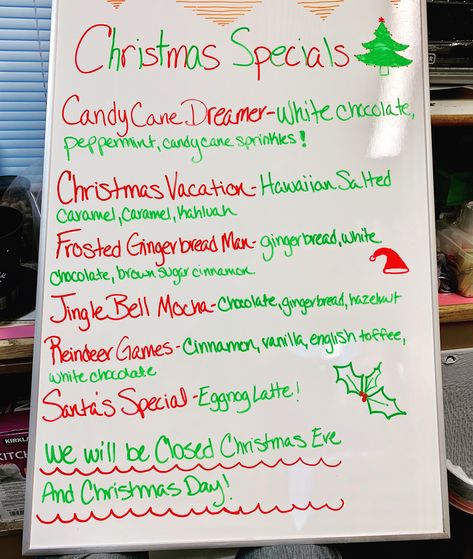 Christmas Specials
Candy Cane Dreamer-White chocolate,
peppermint, candy cane sprinkles!
Christmas Vacation-Hawaiian Salted
Caramel, Caramel, Kahluah
Frosted Gingerbread Man-gingerbread, white
chocolate, brown sugar cinnamon
Jingle Bell Mocha-Chocolate, gingerbread, hazelnut
Reindeer Games-Cinnamon, vanilla, english toffee,
white chocolate
Santa's Special-Eggnog Latte!
We will be Closed Christmas Eve
And Christmas Day!
KIRKLAND
KITCH